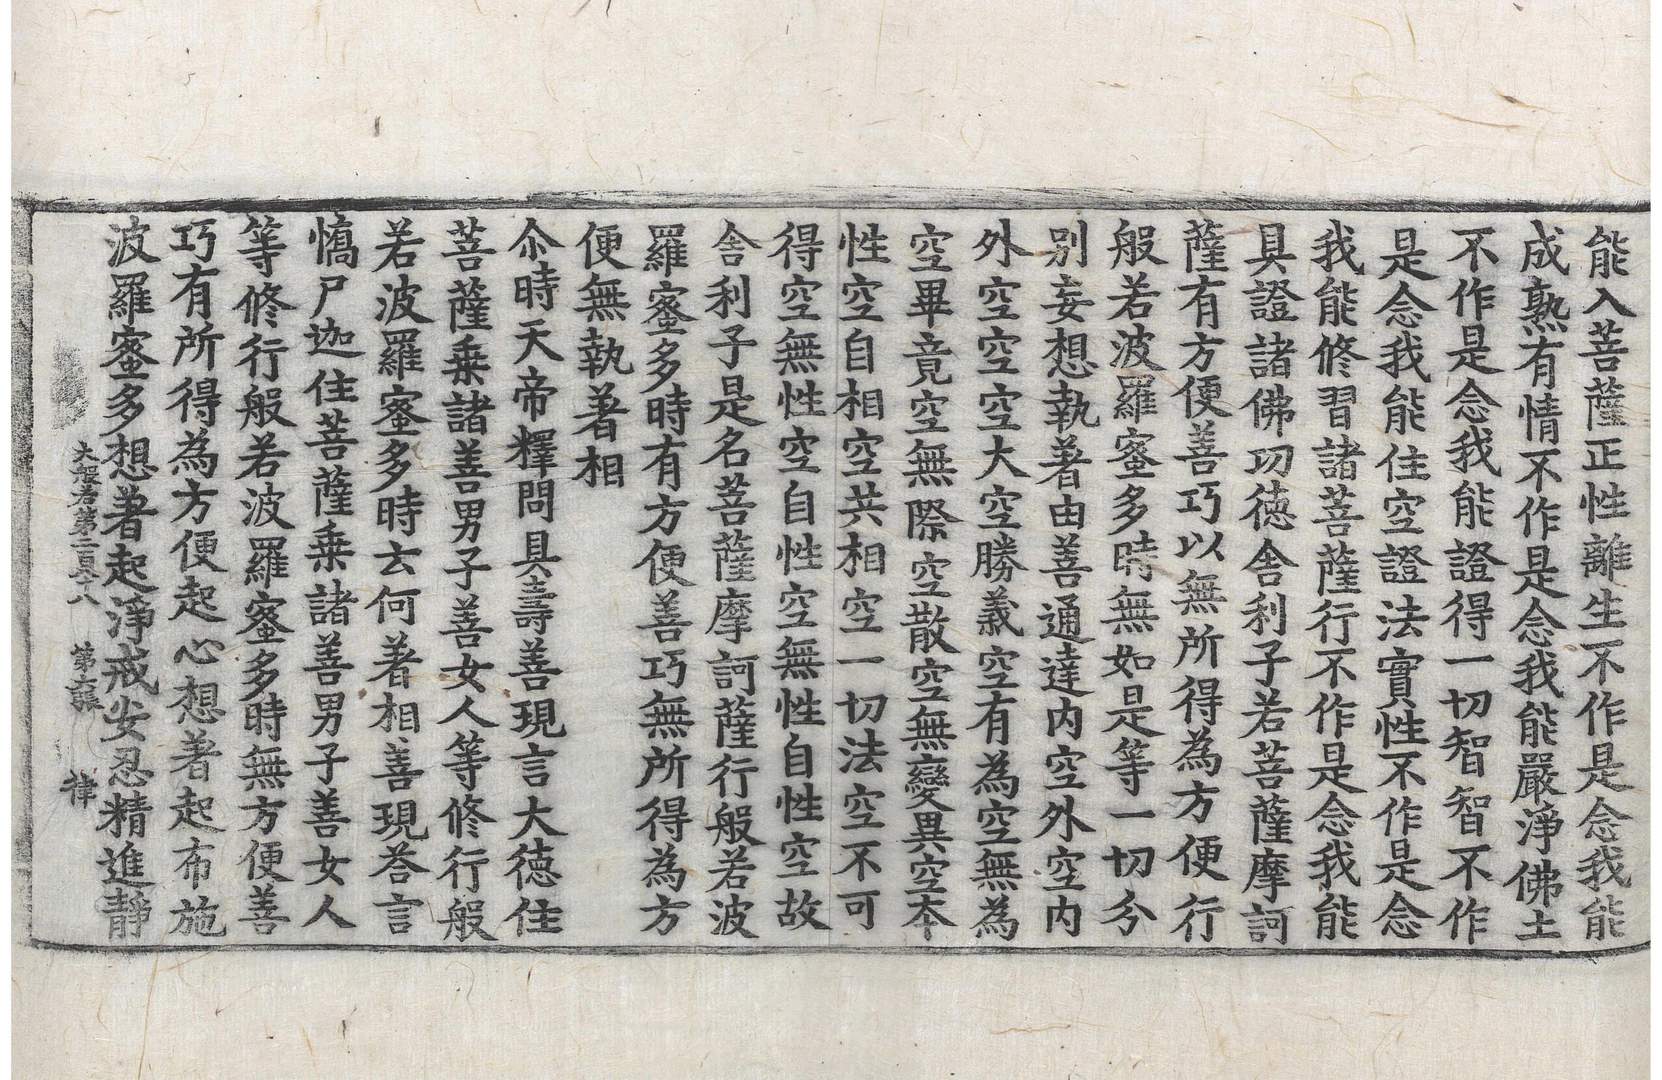 能入菩薩正性離生不作是念我能
成熟有情不作是念我能嚴淨佛土
不作是念我能證得一切智智不作
是念我能住空證法實性不作是念
我能修習諸菩薩行不作是念我能
具證諸佛功德舍利子若菩薩摩訶
薩有方便善巧以無所得為方便行
般若波羅蜜多時無如是等一切分
別妄想執著由善通達內空外空內
外空空空大空勝義空有為空無為
空畢竟空無際空散空無變異空本
性空自相空共相空一切法空不可
得空無性空自性空無性自性空故
舍利子是名菩薩摩訶薩行般若波
羅蜜多時有方便善巧無所得為方
便無執著相
尒時天帝釋問具壽善現言大德住
菩薩乗諸善男子善女人等修行般
若波羅蜜多時云何著相善現荅言
憍尸迦住菩薩乗諸善男子善女人
等修行般若波羅蜜多時無方便善
巧有所得為方便起心想著起布施
波羅蜜多想著起淨戒安忍精進靜
大般若第二百八十八 第六張 律